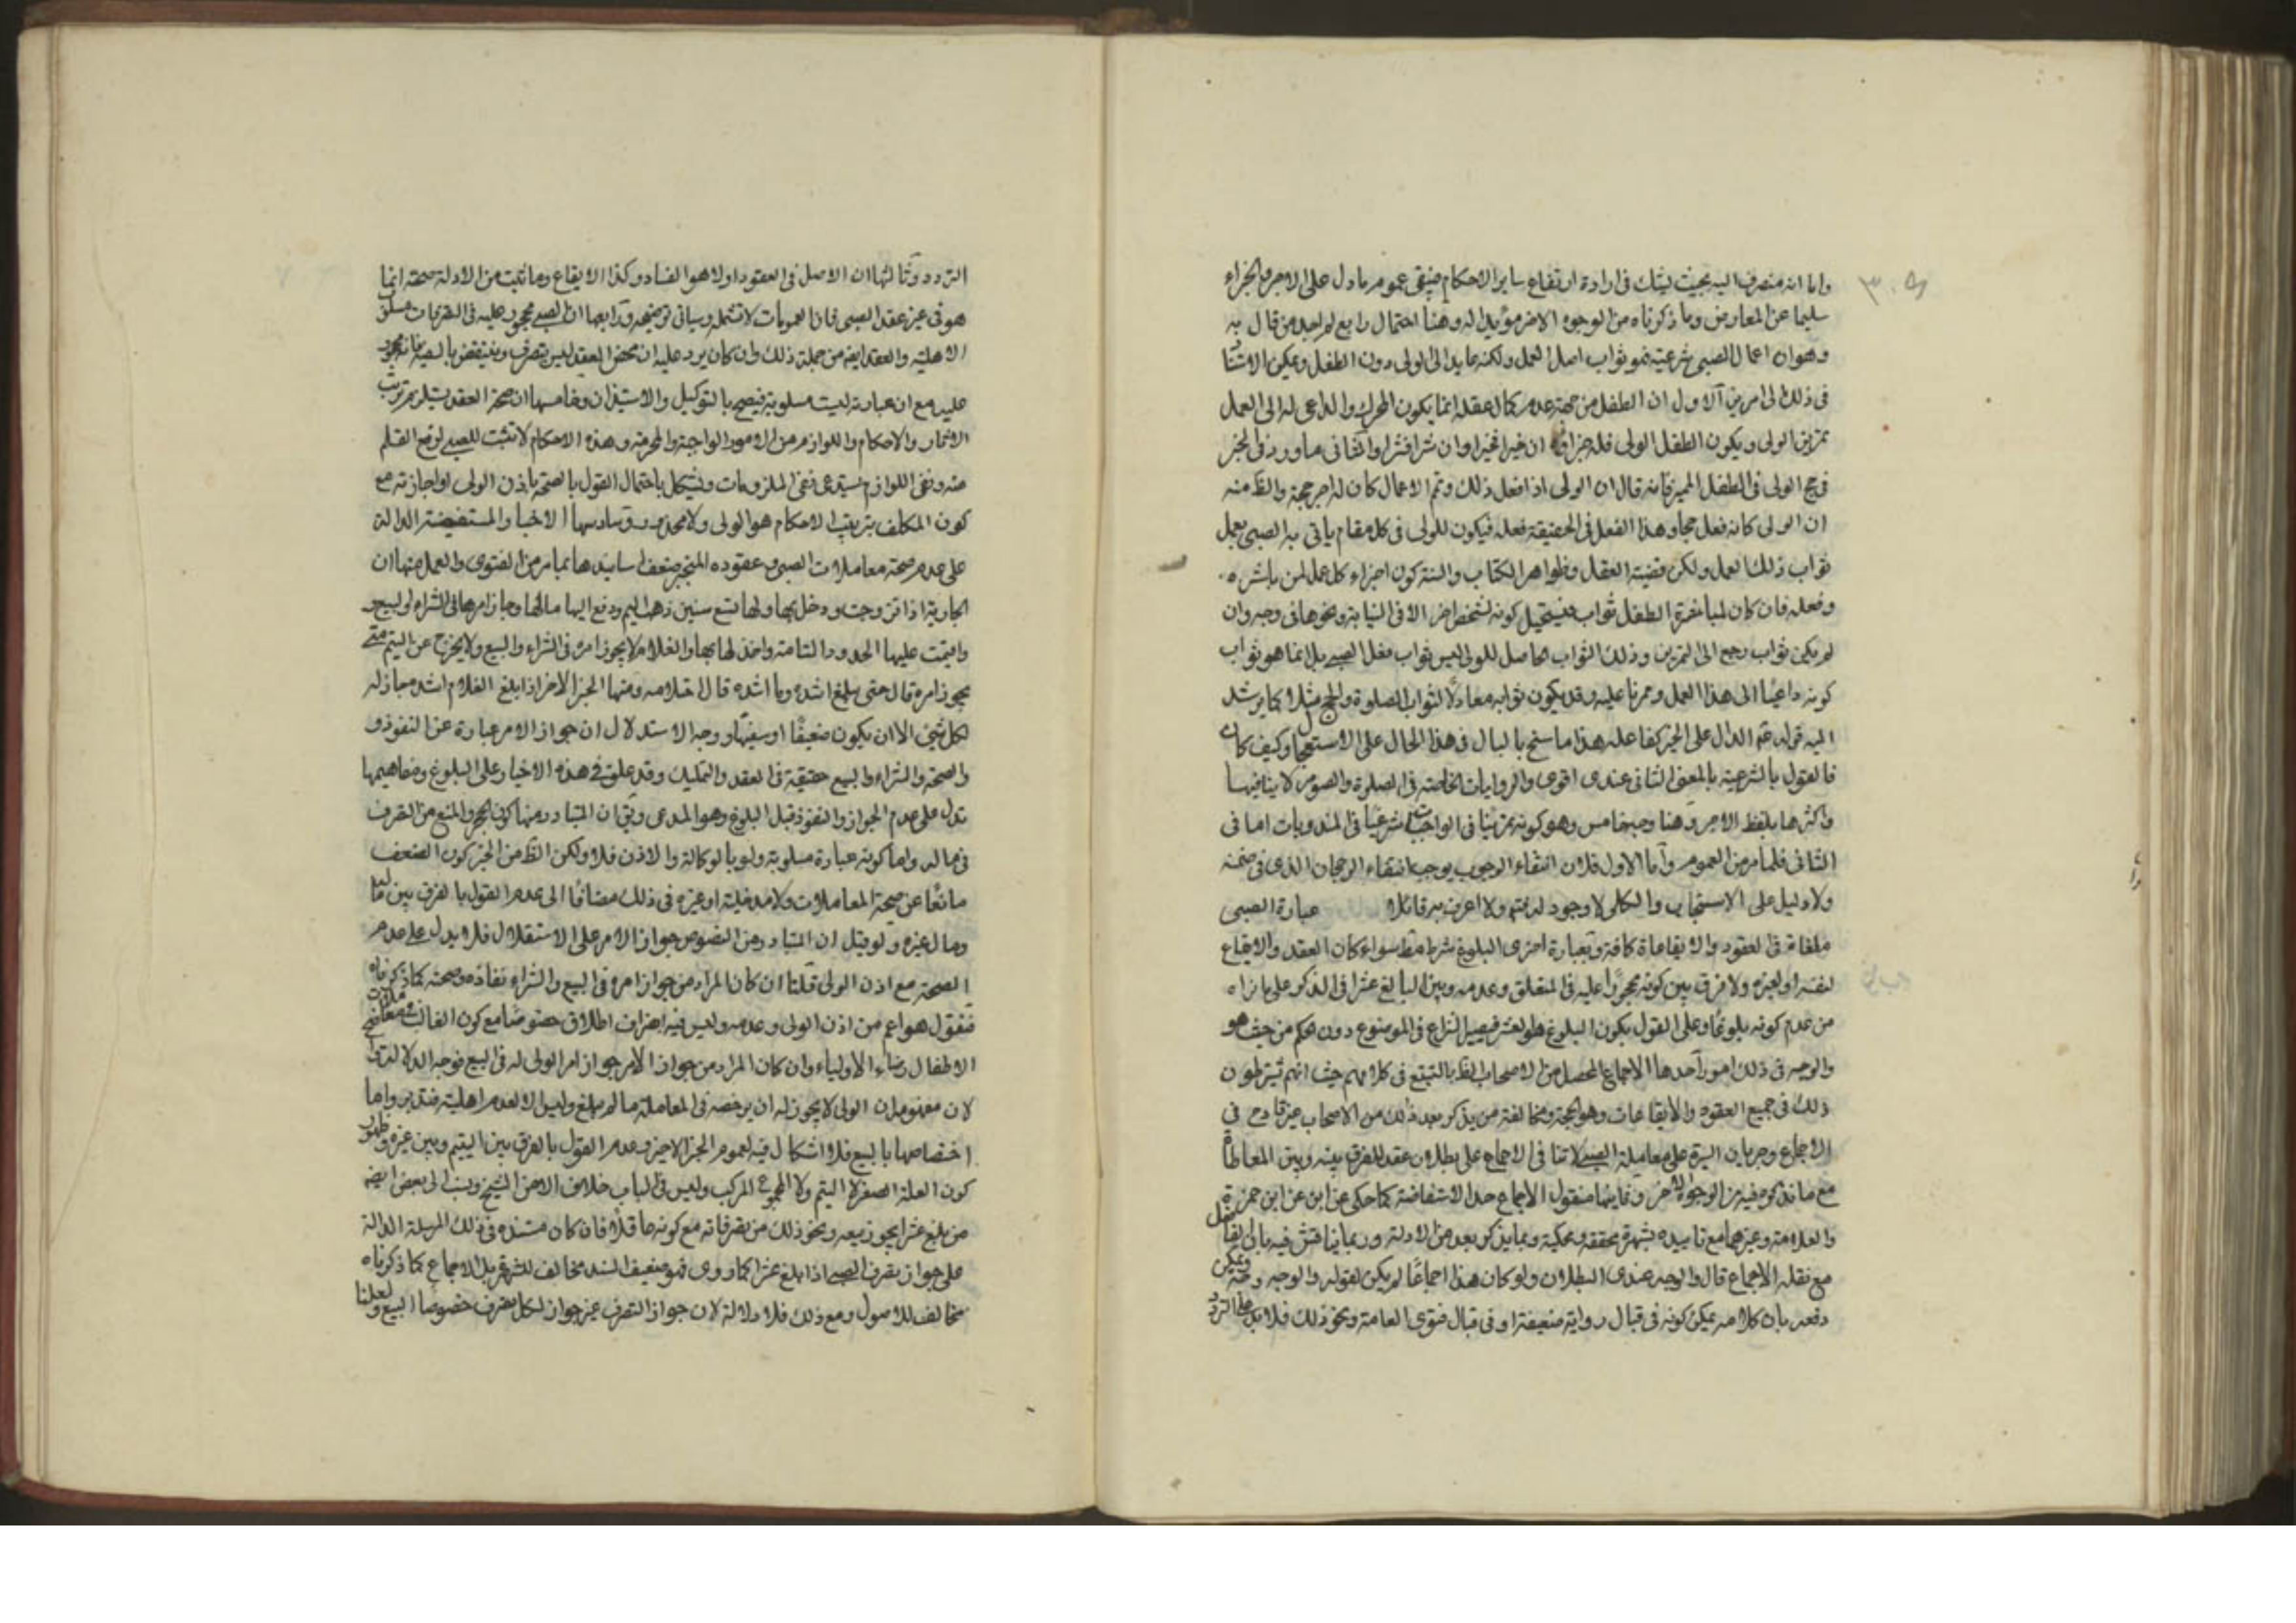 واما انه منصرف اليه بحيث يشك فى ارادة ارتفاع ساير الاحكام فيبقى عموم ما دل على الاجر والجزاء
سليما عن المعارض وما ذكرناه من الوجوه الاخر مؤيدا له وهنا احتمال رابع لم اجد من قال به
وهو ان اعمال الصبى شرعية نحو ثواب اصل العمل ولكنه عايد الى الولى دون الطفل ويمكن الاستناد
فى ذلك الى امرين الاول ان الطفل من جهة عدم كمال عقله انما يكون المحرك والداعى له الى العمل
تمرين الولى ويكون الطفل الولى فله جزاؤه ان خيرا فخيرا وان شرا فشرا والثانى ما ورد فى الخبر
فى حج الولى فى الطفل المميز فانه قال ان الولى اذا فعل ذلك وتم الاعمال كان له اجر حجة والظ منه
ان الولى كانه فعل حجا وهذا الفعل فى الحقيقة فعله فيكون للولى فى كل مقام ياتى به الصبى بعمل
ثواب ذلك العمل ولكن قضية العقل وظواهر الكتاب والسنة كون اجزاء كل عمل لمن باشره
وفعله فان كان لمباشرة الطفل ثواب فيستحيل كونه لشخص اخر الا فى النيابة ونحوها فى وجه وان
لم يكن ثواب رجع الى التمرين وذلك الثواب الحاصل للولى ليس ثواب فعل الصبى بل انما هو ثواب
كونه داعيا الى هذا العمل وممرنا عليه وقد يكون ثوابه معادلا لثواب الصلوة والحج مثلا كما يرشد
اليه قوله عم الدال على الخير كفاعله هذا ما سنح بالبال فى هذا الحال على الاستعجال وكيف كان
فالقول بالشرعية بالمعنى الثانى عندى اقوى والروايات الخاصة فى الصلوة والصوم لا ينافيها
واكثرها بلفظ الامر وهنا وجه خامس وهو كونه تمرينيا فى الواجبات شرعيا فى المندوبات اما فى
الثانى فلما مر من العموم واما الاول فلان انتفاء الوجوب يوجب انتفاء الرجحان الذى فى ضمنه
ولا دليل على الاستحباب والكلى لا وجود له بنفسه ولا اعرف به قائلا عبارة الصبى
ملغاة فى العقود والايقاعات كافة وبعبارة اخرى البلوغ شرط مط سواء كان العقد والايقاع
لنفسه او لغيره ولا فرق بين كونه محجورا عليه فى المتعلق وعدمه وبين البالغ عشرا فى الذكر على ما نراه
من عدم كونه بلوغا وعلى القول بكون البلوغ هو العشر فيصير النزاع فى الموضوع دون الحكم من حيث هو
والوجه فى ذلك امور احدها الاجماع المحصل من الاصحاب الظ بالتتبع فى كلامهم حيث انهم يشترطون
ذلك فى جميع العقود والايقاعات وهو الحجة ومخالفة من يذكر بعد ذلك من الاصحاب غير قادح فى
الاجماع وجريان السيرة على معاملة الصبى لا تنافى الاجماع على بطلان عقده للفرق بينه وبين المعاطاة
مع ما نذكره فيه من الوجوه الاخر وثانيها منقول الاجماع حد الاستفاضة كما حكى عن ابن عن ابن حمزة
والعلامة وغيرهما مع تاييده بشهرة محققة ومحكية وبما يذكر بعد من الادلة وربما يناقش فيه بان الناقل
مع نقله الاجماع قال والوجه عندى البطلان ولو كان هذا اجماعا لم يكن لقوله والوجه وجه ويمكن
دفعه بان كلامه يمكن كونه فى قبال رواية ضعيفة او فى قبال فتوى العامة ونحو ذلك فلا يدل على التردد
التردد وثالثها ان الاصل فى العقود اولا هو الفساد وكذا الايقاع وما ثبت من الادلة صحته انما
هو فى غير عقد الصبى فان العمومات لا تشمله وسياتى توضيحه ورابعها ان الصبى محجور عليه فى التصرفات مسلوب
الاهلية والعقد ايضا من جملة ذلك وان كان يرد عليه ان محض العقد ليس بتصرف وينتقض بالسفيه فانه محجور
عليه مع ان عبارته ليست مسلوبة فيصح بالتوكيل والاستيذان وخامسها ان صحة العقد يستلزم ترتب
الاثار والاحكام واللوازم من الامور الواجبة والمحرمة وهذه الاحكام لا تثبت للصبى لرفع القلم
عنه ونفى اللوازم يستدعى نفى الملزومات ويشكل باحتمال القول بالصحة باذن الولى او اجازته مع
كون المكلف بترتيب الاحكام هو الولى ولا محذور وسادسها الاخبار المستفيضة الدالة
على عدم صحة معاملات الصبى وعقوده المنجبر ضعف اسانيدها بما مر من الفتوى والعمل منها ان
الجارية اذا تزوجت ودخل بها ولها تسع سنين ذهب اليتم ودفع اليها مالها وجاز امرها فى الشراء والبيع
واقيمت عليها الحدود التامة واخذ لها بها والغلام لا يجوز امره فى الشراء والبيع ولا يخرج عن اليتم متى
يجوز امره قال حتى يبلغ اشده وما اشده قال احتلامه ومنها الخبر الاخر اذا بلغ الغلام اشده جاز له
كل شئ الا ان يكون ضعيفا او سفيها ووجه الاستدلال ان جواز الامر عبارة عن النفوذ و
والصحة والشراء والبيع حقيقة فى العقد والتمليك وقد علق فى هذه الاخبار على البلوغ ومفاهيمها
تدل على عدم الجواز والنفوذ قبل البلوغ وهو المدعى ويق ان المتبادر منها كون الحجر والمنع من التصرف
فى ماله واما كونه عبارة مسلوبة ولو بالوكالة والاذن فلا ولكن الظ من الخبر كون الضعف
مانعا عن صحة المعاملات ولا مدخلية او غيره فى ذلك مضافا الى عدم القول بالفرق بين ماله
ومال غيره ولو قيل ان المتبادر من النصوص جواز الامر على الاستقلال فلا يدل على عدم
الصحة مع اذن الولى قلنا ان كان المراد من جواز امره فى البيع والشراء نفاذه وصحته كما ذكرناه
فنقول هو اعم من اذن الولى وعدمه وليس فيه انصراف اطلاق خصوصا مع كون الغالب
الاطفال رضاء الاولياء وان كان المراد من جواز الامر جواز امر الولى له فى البيع فوجه الدلالة
لان مفهومه ان الولى لا يجوز له ان يرخصه فى المعاملة ما لم يبلغ وليس الا لعدم اهليته فتدبر واما
اختصاصها بالبيع فلا اشكال فيه لعموم الخبر الاخير وعدم القول بالفرق بين اليتيم وبين غيره وظهور
كون العلة الصغر لا اليتم ولا المجموع المركب وليس فى الباب خلاف الا عن الشيخ ونسب الى بعض ايضا
من بلغ عشرا يجوز بيعه ونحو ذلك من تصرفاته مع كونه عاقلا فان كان مستنده فى ذلك المرسلة الدالة
على جواز تصرف الصبى اذا بلغ عشرا كما روى فهو ضعيف السند مخالف للشهرة بل الاجماع كما ذكرناه
مخالف للاصول ومع ذلك فلا دلالة لان جواز التصرف غير جواز لكل تصرف خصوصا البيع ولعلنا